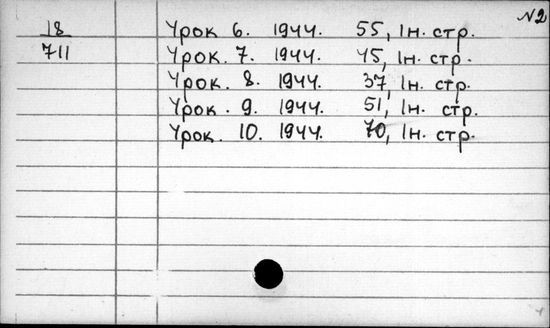 N2
18
711
Урок 6. 1944. 55, 1н. стр.
Урок. 7. 1944. 45, 1н. стр.
Урок. 8. 1944. 37, 1н. стр.
Урок. 9. 1944. 51, 1н. стр.
Урок. 10. 1944. 70, 1н. стр.